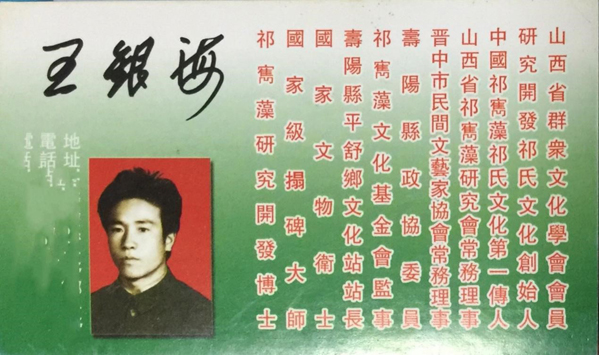 山西省群衆文化學會會員
研究開發祁氏文化創始人
中國祁寯藻祁氏文化第一傳人
山西省祁寯藻研究會常務理事
晉中市民間文藝家協會常務理事
壽陽縣政協委員
祁寯藻文化基金會監事
壽陽縣平舒鄉文化站站長
國家文物衛士
國家級搨碑大師
祁寯藻研究開發博士
王銀海
地址:
電話: